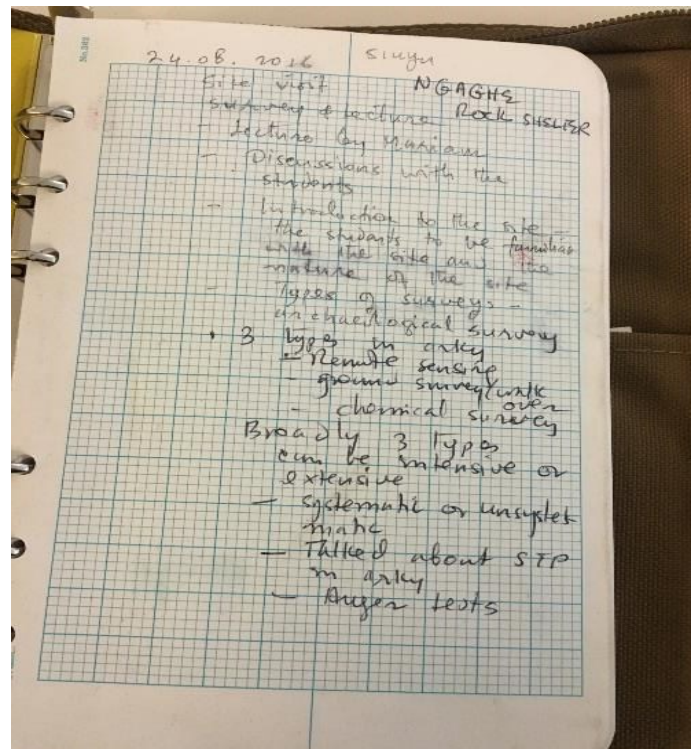 24.08.2016 Singa
NGAGHE
Site visit
ROCK SHELTER
survey & lecture
- Lecture by Mariam
- Discussions with the
students
- Introduction to the site -
the students to be familiar
with the site and the
nature of the site
- Types of surveys -
archaeological survey
• 3 types in arky
- Remote sensing
- ground survey/walk
over
- chemical survey
Broadly 3 types
can be intensive or
extensive
- systematic or unsystet
matic
- Talked about STP
in arky
- Auger tests